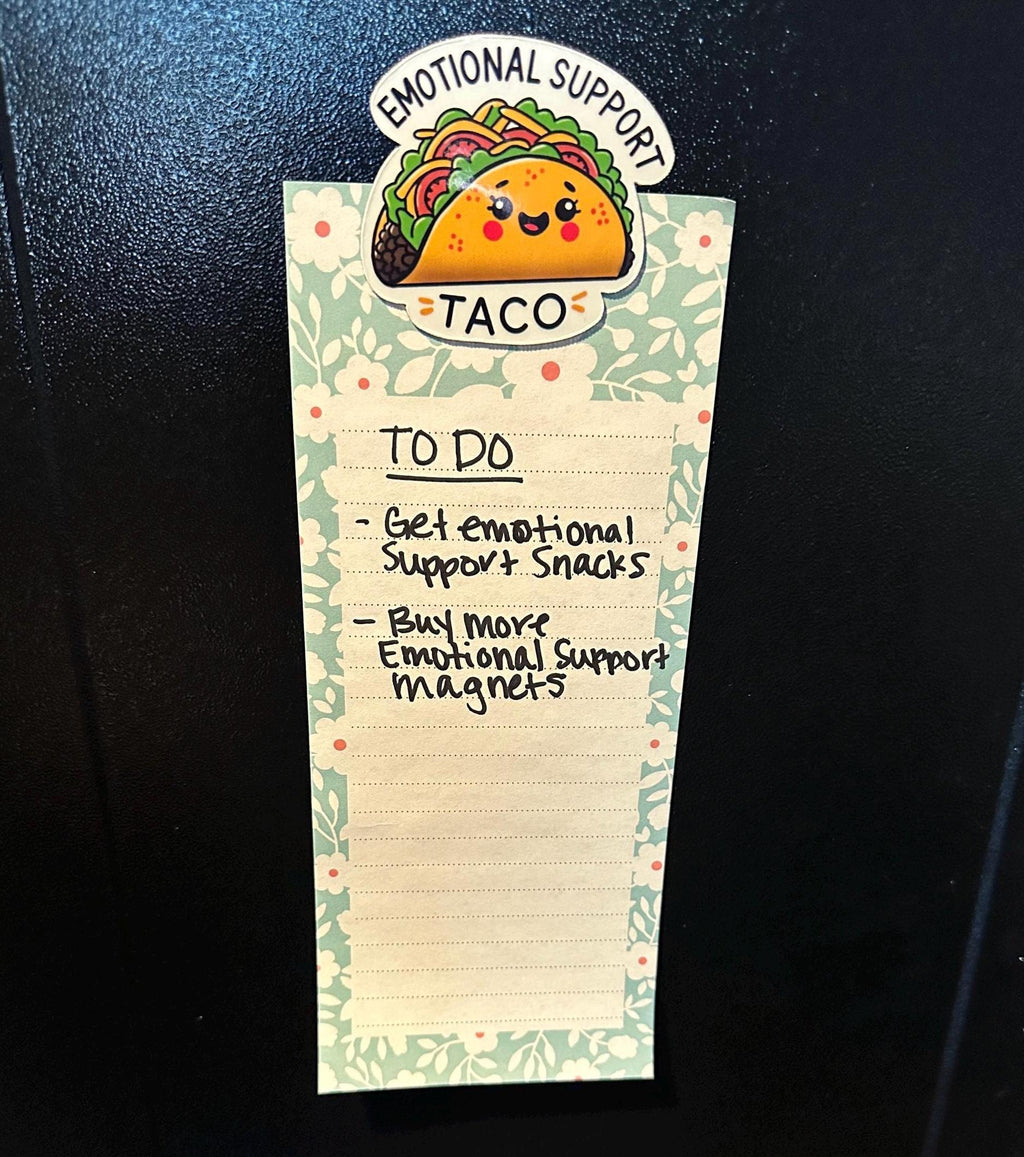 EMOTIONAL SUPPORT
TACO
TO DO
- Get emotional
Support Snacks
- Buy more
Emotional Support
magnets